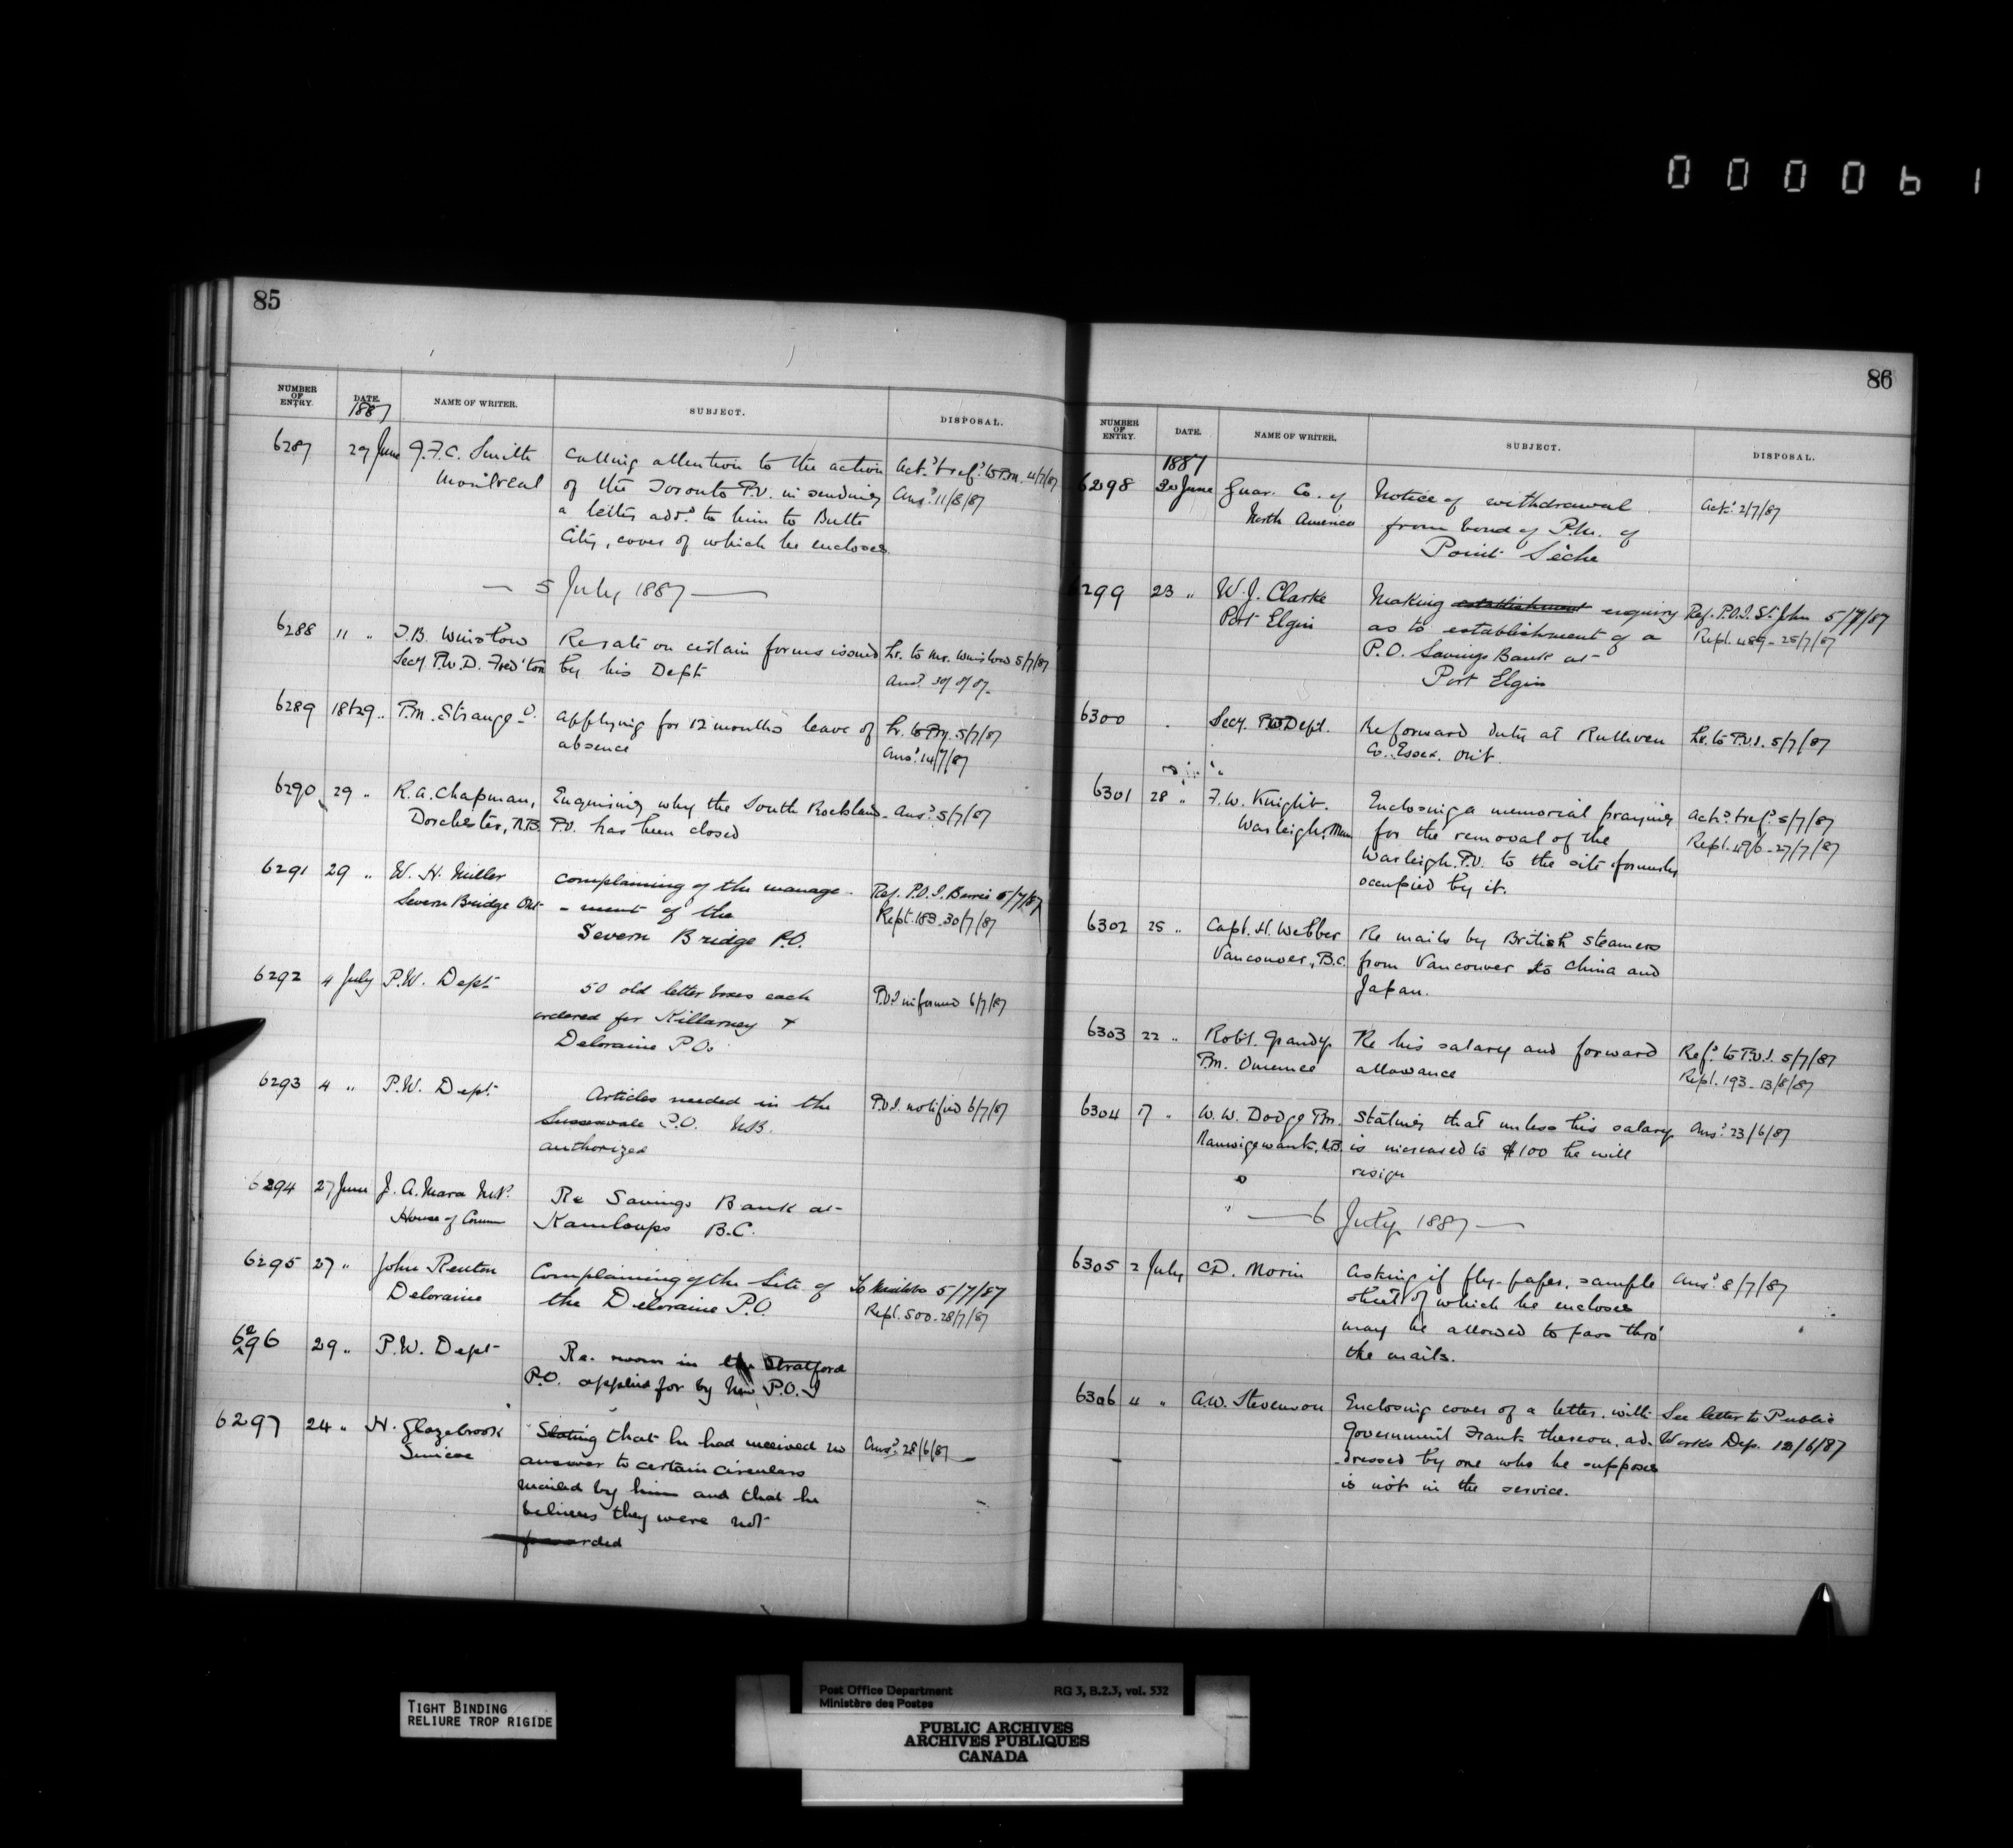 0 0 0 0 6 1
85
NUMBER OF ENTRY.
DATE.
NAME OF WRITER.
SUBJECT.
DISPOSAL.
1887
6287 29 June J.F.C. Smith Calling attention to the action Ack.d & ref.d to P.M. 4/7/87
Montreal of the Toronto P.O. in sending Ans.d 11/8/87
a letter add.d to him to Butte
City, cover of which he encloses
— 5 July 1887 —
6288 11 " T.B. Winslow Re rate on certain forms issued Lr. to Mr. Winslow 5/7/87
Secy. P.W.D. Fred'ton by his Dept
6289 18 & 29 " P.M. Strange applying for 12 months leave of 5/7/87
absence Ans.d 14/7/87
6290 29 " R.A. Chapman, Enquiring why the South Rockland Ans.d 5/7/87
Dorchester, N.B. P.O. has been closed
6291 29 " W. H. Miller Complaining of the manage- Ref. P.O.I. Barrie 5/7/87
Severn Bridge Ont - ment of the Rept. 183 - 30/7/87
Severn Bridge P.O.
6292 4 July P.W. Dept 50 old letter boxes each P.O.I. informed 6/7/87
ordered for Killarney &
Deloraine P.Os
6293 4 " P.W. Dept Articles needed in the P.O.I. notified 6/7/87
P.O. N.B.
authorized
6294 27 June J. A. Mara M.P. Re Savings Bank at
House of Comm Kamloops B.C.
6295 27 " John Renton Complaining of the Site of To Manitoba 5/7/87
Deloraine the Deloraine P.O. Rept. 500 - 28/7/87
6296 29 " P.W. Dept Re. room in the Stratford
P.O. applied for by New P.O.I
6297 24 " H. Glazebrook Stating that he had received no Ans.d 28/6/87
Simcoe answer to certain circulars
mailed by him and that he
believes they were not
forwarded
86
NUMBER OF ENTRY.
DATE.
NAME OF WRITER.
SUBJECT.
DISPOSAL.
1887
6298 30 June Guar. Co. of Notice of withdrawal Ack.d 2/7/87
North America from bond of P.M. of
Point Sèche
6299 23 " W. J. Clarke Making establishment enquiry Ref. P.O.I. St. John 5/7/87
Port Elgin as to establishment of a Rept. 489 - 25/7/87
P.O. Savings Bank at
Port Elgin
6300 Secy. P.O Dept. Re forward duty at Ruthven Lr. to P.O.I. 5/7/87
Co. Essex. Ont.
6301 28 " F.W. Knight. Enclosing a memorial praying Ack.d & ref.d 5/7/87
Warleigh, Man for the removal of the Rept. 496 - 27/7/87
Warleigh P.O. to the site formerly
occupied by it.
6302 25 " Capt. H. Webber Re mails by British steamers
Vancouver, B.C. from Vancouver to China and
Japan.
6303 22 " Robt. Grandy Re his salary and forward Ref.d to P.O.I. 5/7/87
P.M. Omemee allowance Rept. 193 - 13/8/87
6304 17 " W. W. Dodge P.M. Stating that unless his salary Ans.d 23/6/87
Nauwigewauk, N.B. is increased to $100 he will
resign
— 6 July 1887 —
6305 2 July C.D. Morin Asking if fly-paper, sample Ans.d 8/7/87
sheet of which he encloses
may be allowed to pass thro'
the mails.
6306 4 " A.W. Stevenson Enclosing cover of a letter, with See letter to Public
Government Frank thereon, ad- Works Dep. 12/6/87
dressed by one who he supposes
is not in the service.
TIGHT BINDING
RELIURE TROP RIGIDE
Post Office Department RG 3, B.2.3, vol. 532
Ministère des Postes
PUBLIC ARCHIVES
ARCHIVES PUBLIQUES
CANADA